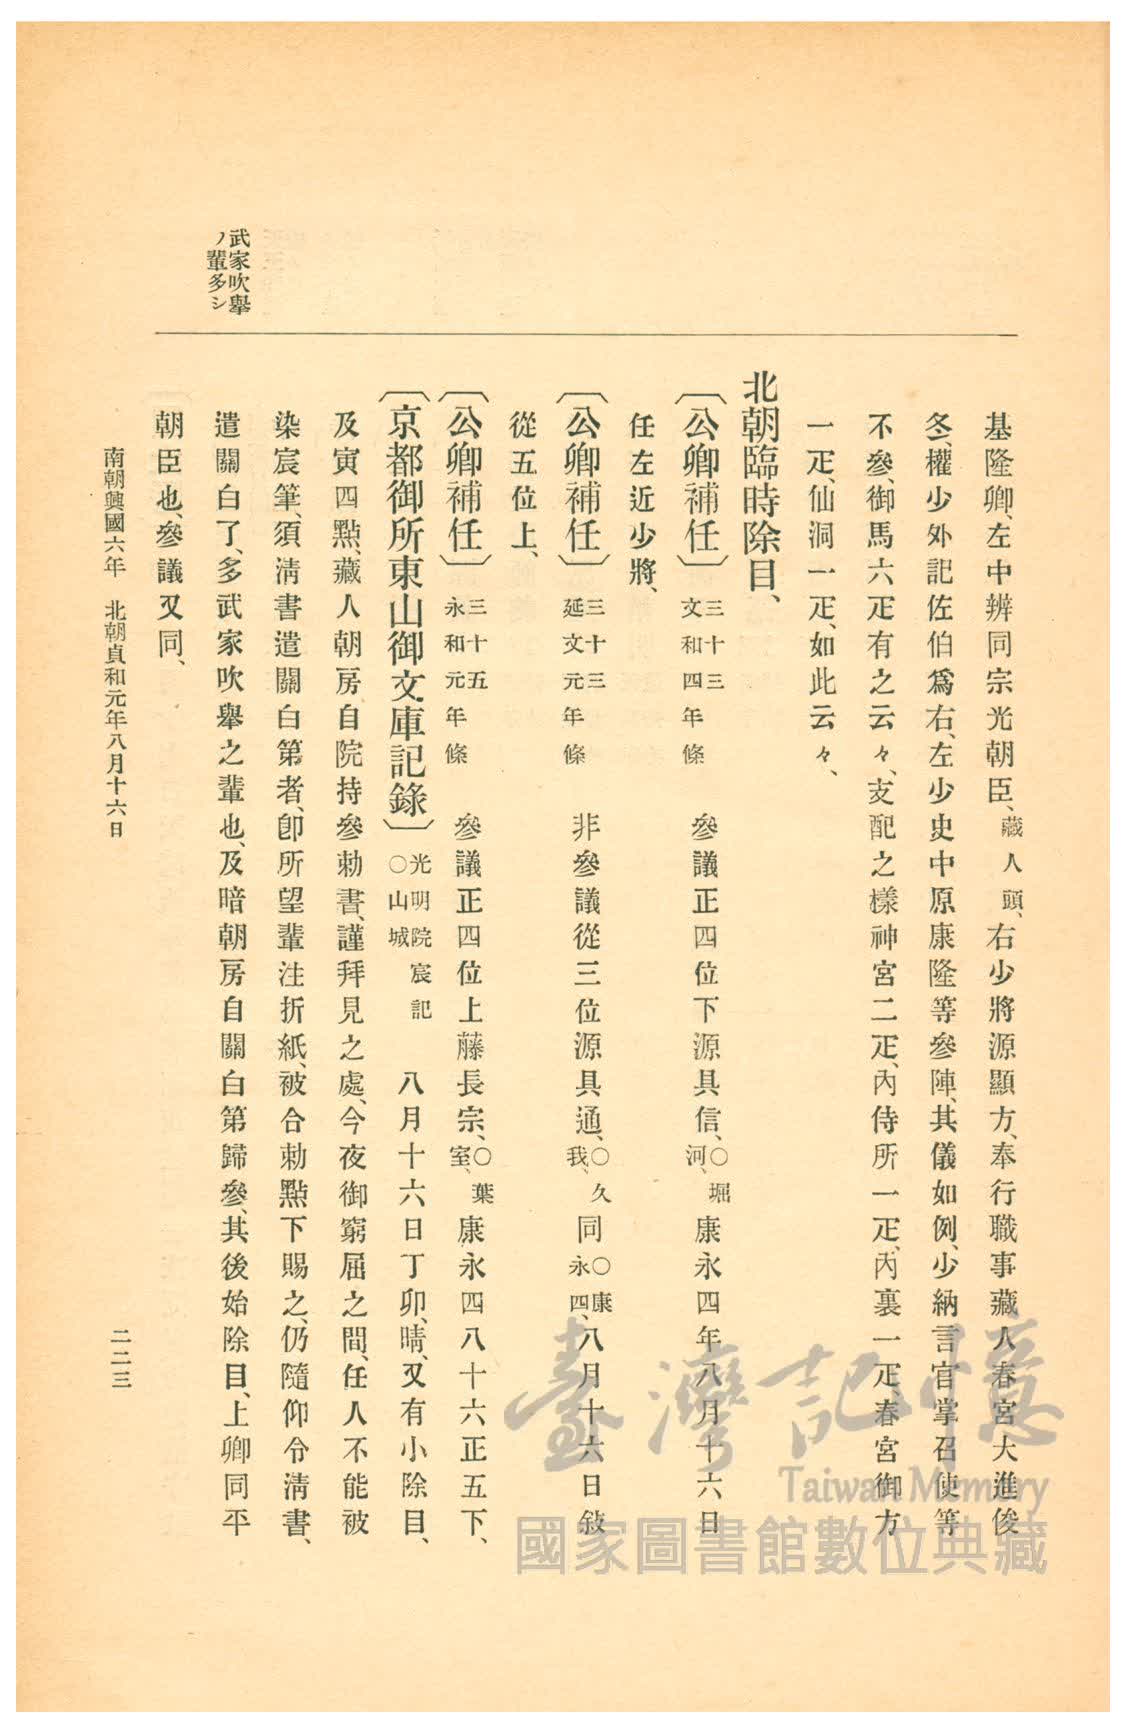 武家吹擧
ノ輩多シ
基隆卿、左中辨同宗光朝臣、藏人頭、右少將源顯方、奉行職事藏人春宮大進俊
冬、權少外記佐伯爲右、左少史中原康隆等參陣、其儀如例、少納言官掌召使等
不參、御馬六疋有之云々、支配之樣神宮二疋、內侍所一疋、內裏一疋春宮御方
一疋、仙洞一疋、如此云々、
北朝臨時除目、
〔公卿補任〕三十三文和四年條 參議正四位下源具信、○堀河、康永四年八月十六日
任左近少將、
〔公卿補任〕三十三延文元年條 非參議從三位源具通、○久我、同○康永四、八月十六日敍
從五位上、
〔公卿補任〕三十五永和元年條 參議正四位上藤長宗、○葉室、康永四八十六正五下、
〔京都御所東山御文庫記錄〕光明院宸記○山城 八月十六日丁卯、晴、又有小除目、
及寅四點、藏人朝房、自院持參勅書、謹拜見之處、今夜御窮屈之間、任人不能被
染宸筆、須淸書遣關白第者、卽所望輩注折紙、被合勅點下賜之、仍隨仰令淸書、
遣關白了、多武家吹舉之輩也、及暗朝房自關白第歸參、其後始除目、上卿同平
朝臣也、參議又同、
南朝興國六年 北朝貞和元年八月十六日
二二三
臺灣記憶
Taiwan Memory
國家圖書館數位典藏